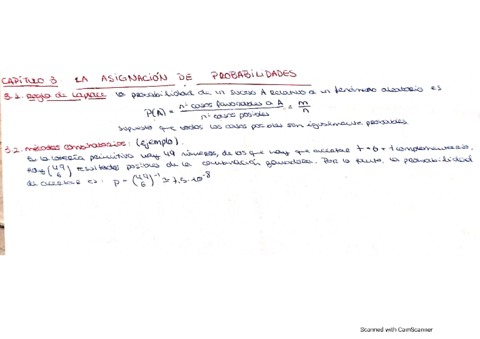 CAPÍTULO 3 LA ASIGNACIÓN DE PROBABILIDADES
3.1. Regla de Laplace La probabilidad de un suceso A relativo a un fenómeno aleatorio es
P(A) = nº casos favorables a A / nº casos posibles = m/n
supuesto que todos los casos posibles son igualmente probables.
3.2. métodos combinatorios: (ejemplo).
En la lotería primitiva hay 49 números, de los que hay que acertar 7 = 6 + 1 complementario.
Hay (49 6) resultados posibles de la combinación ganadora. Por lo tanto, la probabilidad
de acertar es: p = (49 6)⁻¹ ≃ 7,5·10⁻⁸
Scanned with CamScanner